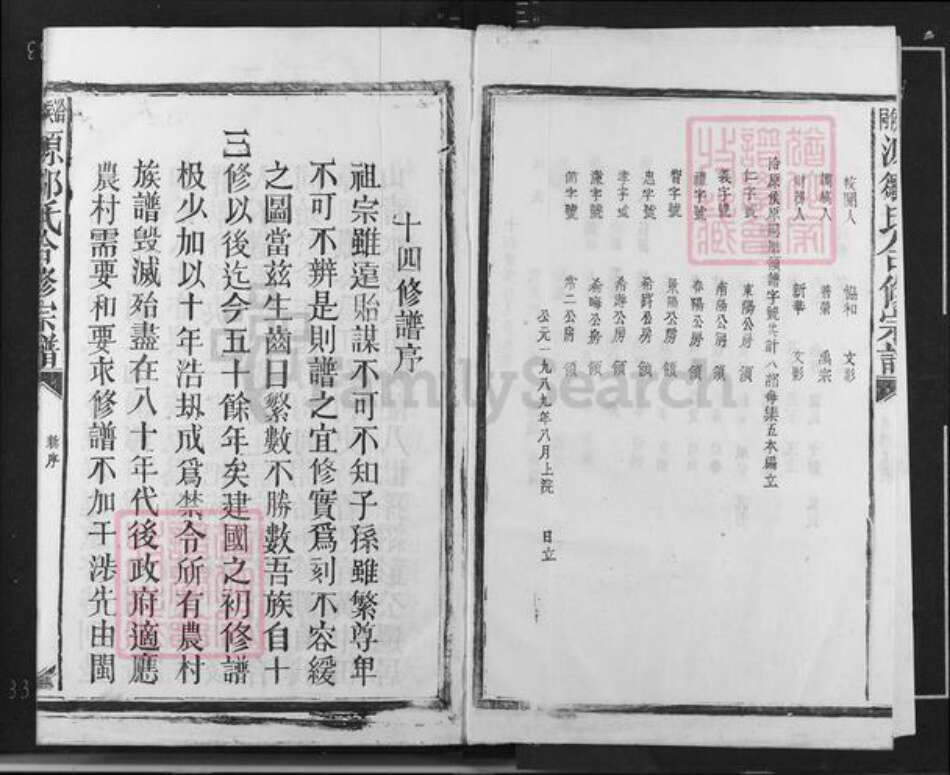 校閱人　協和　文彩
編輯人　普榮　禹宗
財務人　新華　文影
仁字號　東陽公房　領
義字號　南陽公房　領
禮字號　春陽公房　領
智字號　景陽公房　領
忠字號　公房　領
孝字號　公房　領
廉字號　希晦公房　領
節字號　常二公房　領
公元一九八九年八月上浣　日立
源鄒氏合修宗譜
十四修譜序
祖宗雖遠貽謀不可不知子孫雖繁尊卑
不可不辨是則譜之宜修實爲刻不容緩
之圖當茲生齒日繁數不勝數吾族自十
三修以後迄今五十餘年矣建國之初修譜
极少加以十年浩刼成爲禁令所有農村
族譜毀滅殆盡在八十年代後政府適應
農村需要和要求修譜不加干涉先由閩
源鄒氏合修宗譜
序
FamilySearch
33